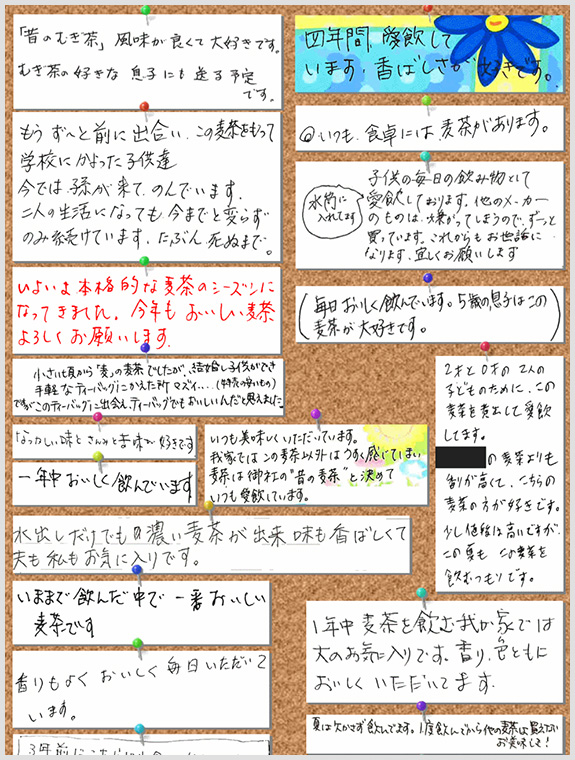 「昔のむぎ茶」風味が良くて大好きです。
むぎ茶の好きな息子にも送る予定
です。
もうず〜と前に出合い、この麦茶をもって
学校にかよった子供達
今では孫が来て、のんでいます。
二人の生活になっても今までと変らず
のみ続けています。たぶん死ぬまで。
いよいよ本格的な麦茶のシーズンに
なってきました。今年もおいしい麦茶
よろしくお願いします。
小さい頃から「麦」の麦茶でしたが、結婚し子供ができ
手軽なティーバッグにかえた所マズイ...(特売の安いもの)
このティーバッグに出会え、ティーバッグでもおいしいんだと思えました
なつかしい味と
好きです
一年中おいしく飲んでいます
いつも美味しくいただいています。
我家ではこの麦茶以外はうすく感じてしまい
麦茶は御社の“昔の麦茶”と決めて
いつも愛飲しています。
水出しだけでもの濃い麦茶が出来味も香ばしくて
夫も私もお気に入りです。
いままで飲んだ中で一番おいしい
麦茶です
香りもよくおいしく毎日いただいて
います。
3年前に
四年間、愛飲して
います。香ばしさが好きです。
@いつも、食卓には麦茶があります。
水筒に
入れてます
子供の毎日の飲み物として
愛飲しております。他のメーカー
のものは、嫌がってしまうので、ずっと
買っています。これからもお世話に
なります。宜しくお願いします
(毎日おいしく飲んでいます。5歳の息子はこの
麦茶が大好きです。)
2才と0才の2人の
子どものために、この
麦茶を煮出して愛飲
してます。
の麦茶よりも
香りが高くて、こちらの
麦茶の方が好きです。
少し値段は高いですが、
この夏もこの麦茶を
飲むつもりです。
1年中麦茶を飲む我が家では
大のお気に入りです。香り、色ともに
おいしくいただいてます。
夏は欠かさず飲んでます。1度飲んでから他の麦茶は買えない
お美味しさ！